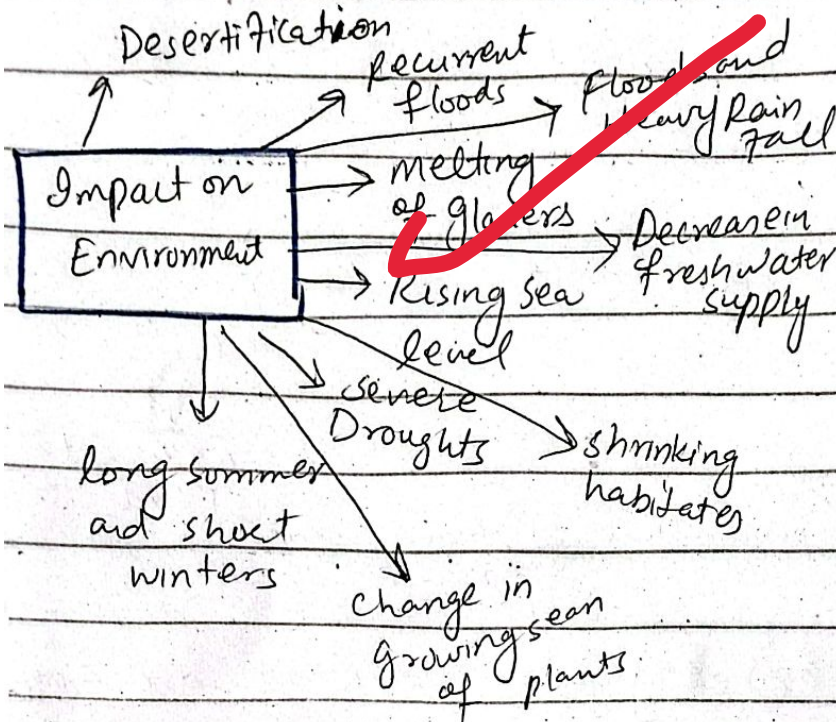 Desertification
Recurrent
floods
Floods and
Heavy Rain
fall
Impact on
Environment
melting
of glaciers
Decrease in
freshwater
supply
Rising sea
level
severe
Droughts
shrinking
habitates
long sommer
and short
winters
change in
growing sean
of plants